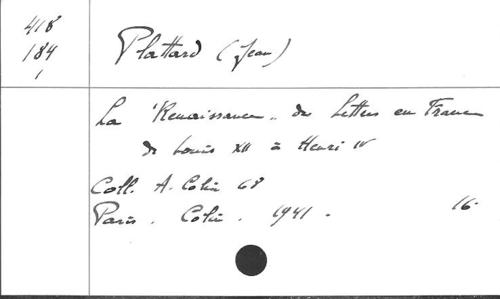 418
184
1
Plattard (Jean)
La "Renaissance" des Lettres en France
de Louis XII à Henri IV
Coll. A. Colin 68
Paris. Colin. 1941. 16.